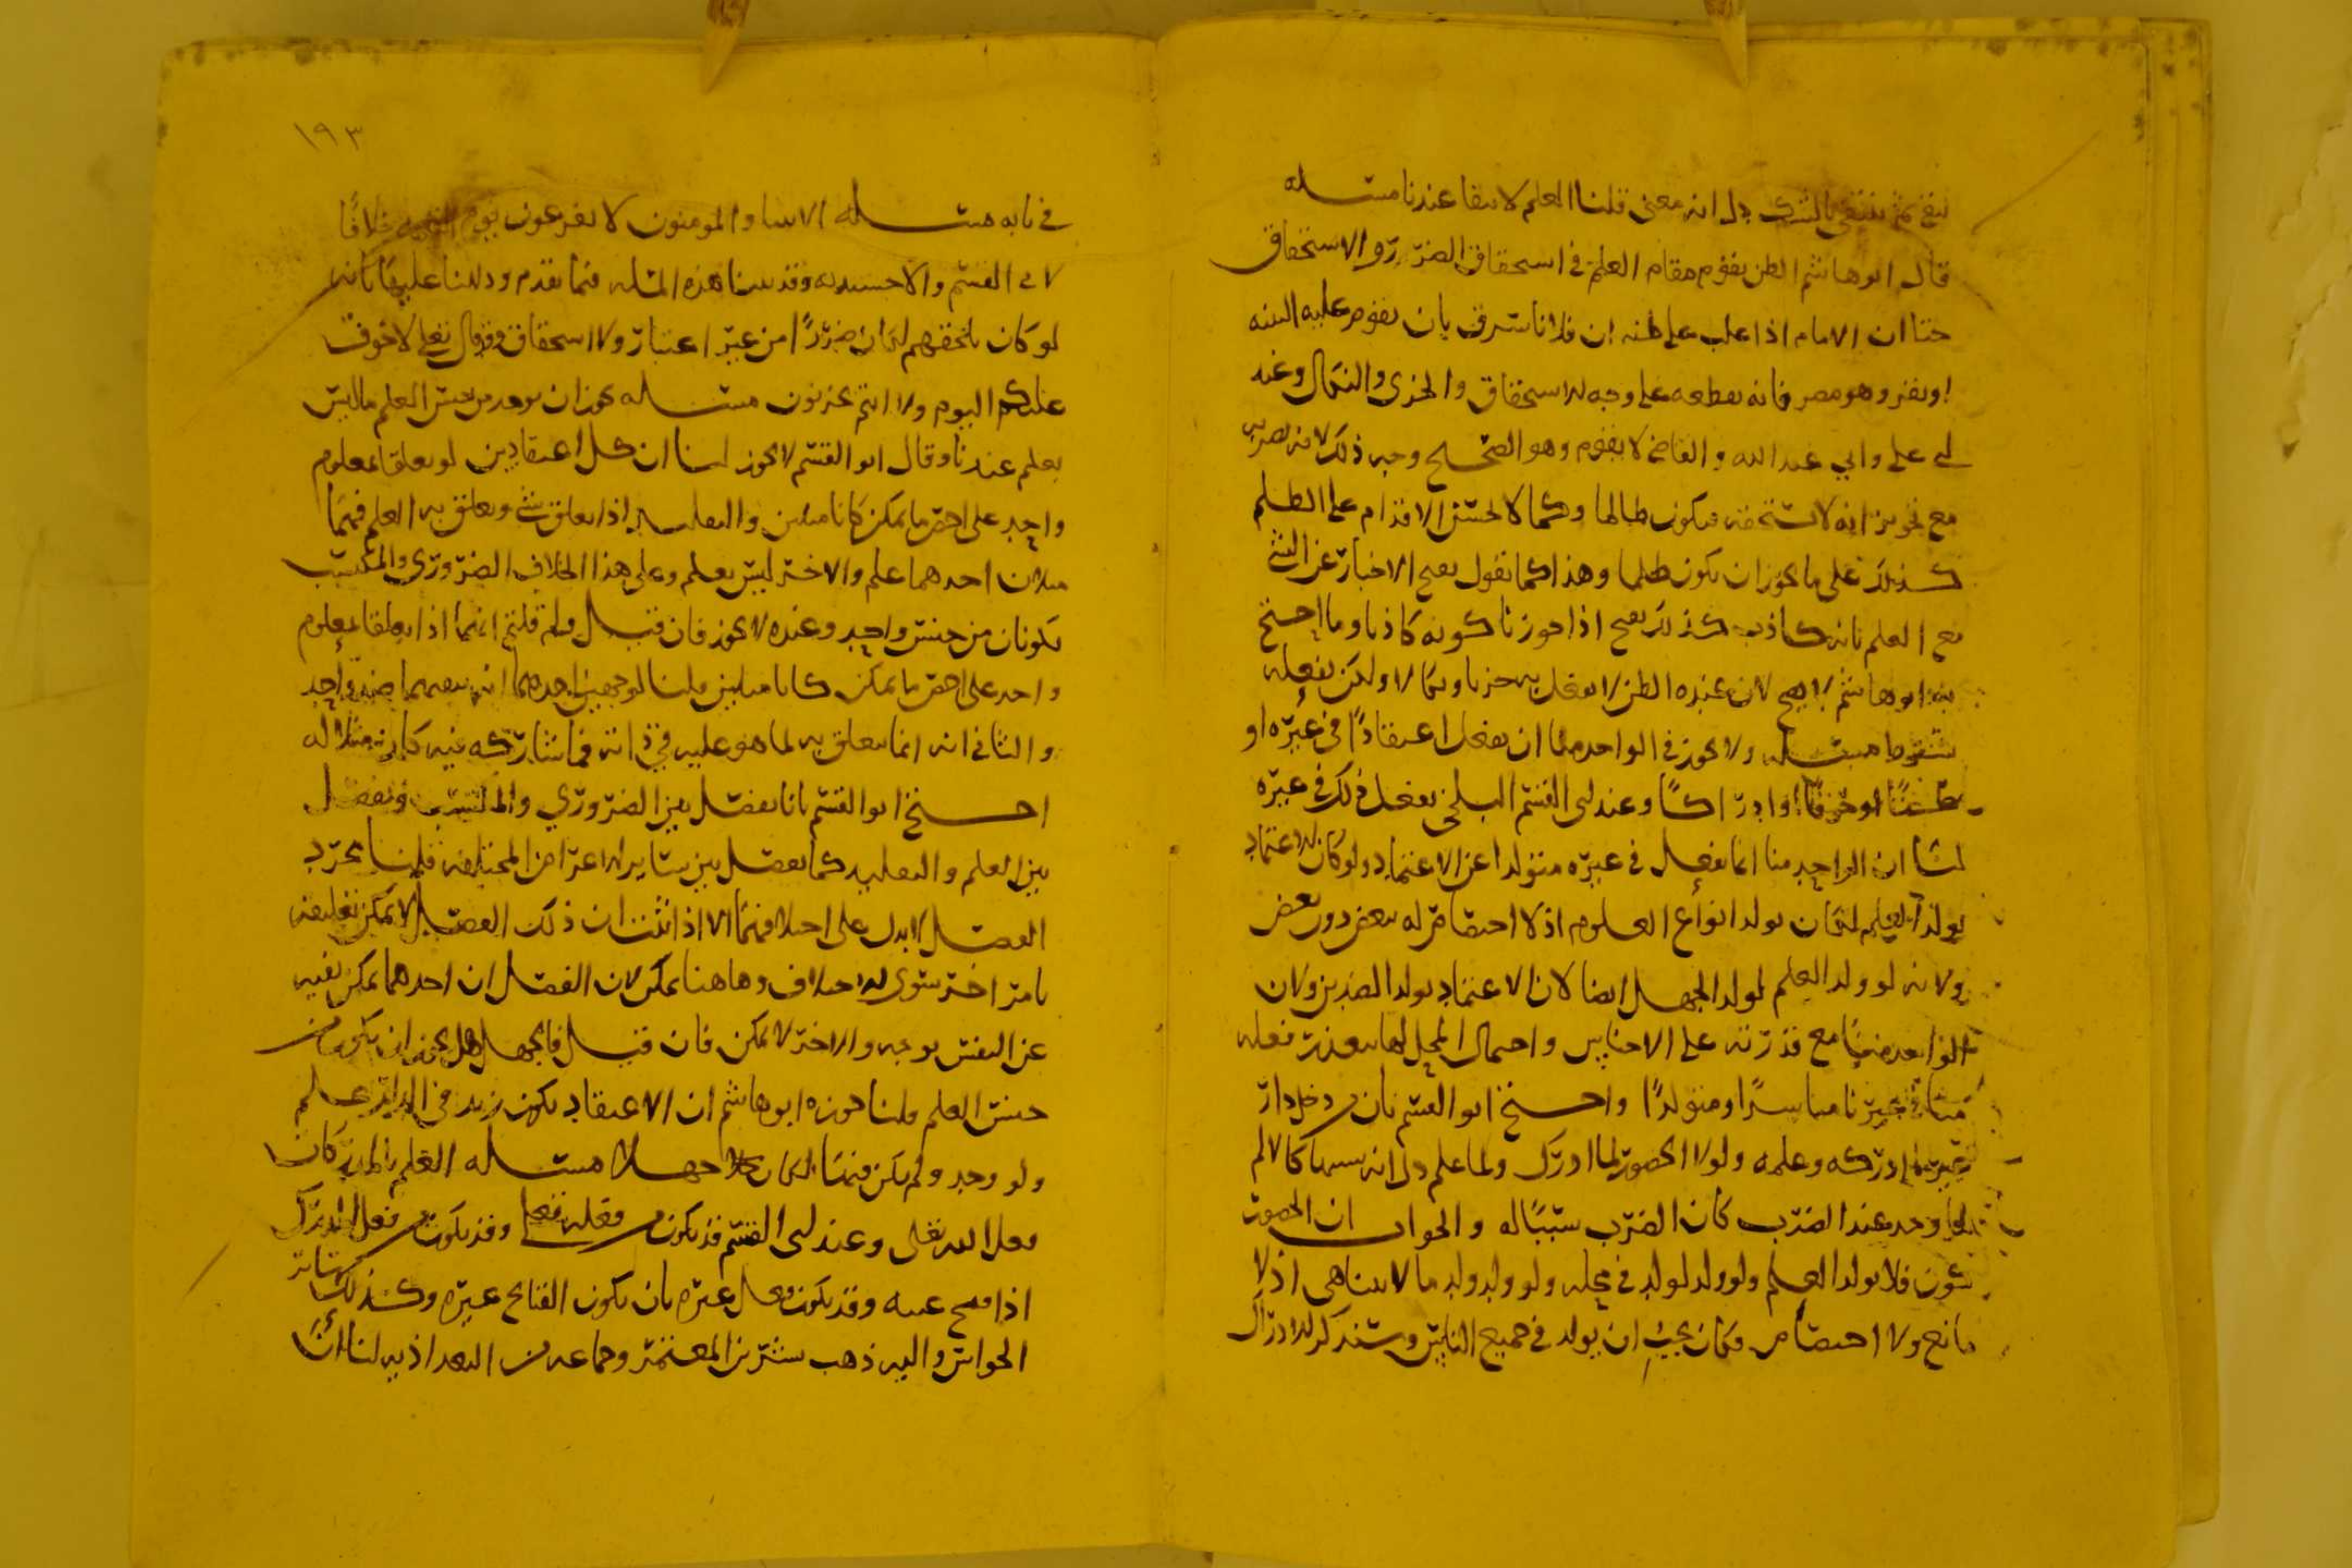 ينتفي بالشك دل انه معنى قلنا العلم لا يبقا عندنا مسله
قال ابو هاشم الظن يقوم مقام العلم في استحقاق الضرر والاستخفاف
حتا ان الامام اذا غلب على ظنه ان فلانا سرق بان يقوم عليه البينه
او يقر وهو مصر فانه يقطعه على وجه الاستحقاق والخزى والنكال وعند
ابي علي وابي عبد الله والقاضي لا يقوم وهو الصحيح وجه ذلك لانه
مع تجويز انه لا يستحقه فيكون ظالما وكما لا يحسن الاقدام على الظلم
كذلك على ما يجوز ان يكون ظلما وهذا كما نقول يقبح الاخبار عن الشي
مع العلم بانه كاذب كذلك يقبح اذا جوزنا كونه كاذبا وما احتج
به ابو هاشم لا يصح لان عنده الظن لا يفعل به
مسله ولا يجوز في الواحد منا ان يفعل اعتقادًا في غيره او
او ادراكًا وعند ابى القسم البلخي يفعل ذلك في غيره
لنا ان الواحد منا انما يفعل في غيره متولدا عن الاعتماد ولو كان الاعتماد
يولد العلم لكان يولد انواع العلوم اذ لا اختصاص له ببعض دون بعض
ولانه لو ولد العلم لولد الجهل ايضا لان الاعتماد يولد الضدين ولان
مع قدرته على الاجناس واحتمال المحل لها يتعذر فعله
مباشرًا ومتولدًا واحتج ابو القسم بان من دخل دار
ادركه وعلمه ولولا الحضور لما ادرك ولما علم دل انه سببها كالالم
لما وجد عند الضرب كان الضرب سببًا له والجواب ان الحضور
كون فلا يولد العلم ولو ولد لولد في محله ولو ولد ولد ما لا يتناهى اذ لا
مانع ولا اختصاص فكان يجب ان يولد في جميع الناس وسنذكر الادراك
١٩٣
في بابه مسله الانبيا والمومنون لا يفزعون يوم القيمه خلافًا
لابي القسم والاخشيديه وقد بينا هذه المسله فيما تقدم ودللنا عليها بانه
لو كان يلحقهم لكان ضررًا من غير اعتبار ولا استحقاق وقد قال تعلى لا خوف
عليكم اليوم ولا انتم تحزنون مسله يجوز ان يوجد من جنس العلم ما ليس
بعلم عندنا وقال ابو القسم لا يجوز لنا ان كل اعتقادين لو تعلقا بمعلوم
واحد على اخص ما يمكن كانا مثلين والتقليد اذا تعلق بشي وتعلق به العلم فهما
مثلان احدهما علم والاخر ليس بعلم وعلى هذا الخلاف الضروري والمكتسب
يكونان من جنس واحد وعنده لا يجوز فان قيل ولم قلتم انهما اذا تعلقا بمعلوم
واحد على اخص ما يمكن كانا مثلين قلنا لوجهين احدهما انه
والثاني انه انما يتعلق به لما هو عليه في ذاته فما شاركه فيه كان مثلا له
احتج ابو القسم بانا نفصل بين الضروري والمكتسب ونفصل
بين العلم والتقليد كما نفصل بين سائر الاعراض المختلفه قلنا مجرد
الفصل لا يدل على اختلافهما الا اذا ثبت ان ذلك الفصل لا يمكن تعليقه
بامر اخر سوى الاختلاف وهاهنا يمكن لان الفصل ان احدهما يمكن نفيه
عن النفس بوجه والاخر لا يمكن فان قيل فالجهل هل يجوز ان يكون من
جنس العلم قلنا جوزه ابو هاشم ان الاعتقاد بكون زيد في الدار علم
ولو وجد ولم يكن فيها لكان جهلا مسله العلم بالمدركات
فعل الله تعلى وعند ابى القسم قد يكون من فعله تعلى وقد يكون من فعل المدرك
اذا فتح عينه وقد يكون فعل غيره بان يكون الفاتح غيره وكذلك سائر
الحواس واليه ذهب بشر بن المعتمر وجماعه من البغداذيه لنا ان